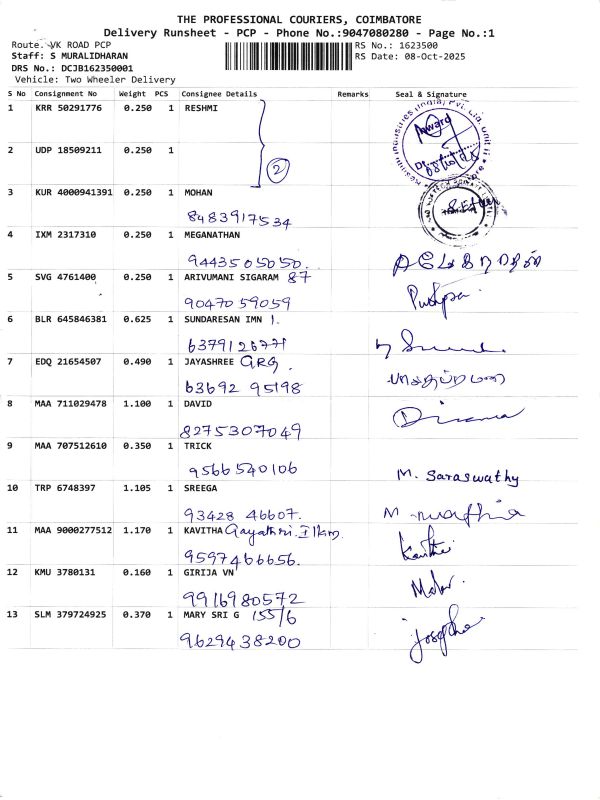 THE PROFESSIONAL COURIERS, COIMBATORE
Delivery Runsheet - PCP - Phone No.:9047080280 - Page No.:1
Route. VK ROAD PCP RS No.: 1623500
Staff: S MURALIDHARAN RS Date: 08-Oct-2025
DRS No.: DCJB162350001
Vehicle: Two Wheeler Delivery
S No Consignment No Weight PCS Consignee Details Remarks Seal & Signature
1 KRR 50291776 0.250 1 RESHMI
2 UDP 18509211 0.250 1
2
3 KUR 4000941391 0.250 1 MOHAN
8483917534
4 IXM 2317310 0.250 1 MEGANATHAN
9443505050.
5 SVG 4761400 0.250 1 ARIVUMANI SIGARAM 87
9047059059 Pushpa.
6 BLR 645846381 0.625 1 SUNDARESAN IMN 1.
7 EDQ 21654507 0.490 1 JAYASHREE GRG
63692 95198
8 MAA 711029478 1.100 1 DAVID
8275307049
9 MAA 707512610 0.350 1 TRICK
9566540106 M. Saraswathy
10 TRP 6748397 1.105 1 SREEGA
93428 46607.
11 MAA 9000277512 1.170 1 KAVITHA Gayathri. Illam
9597466656.
12 KMU 3780131 0.160 1 GIRIJA VN
9916980572
13 SLM 379724925 0.370 1 MARY SRI G 155/6
9629438200